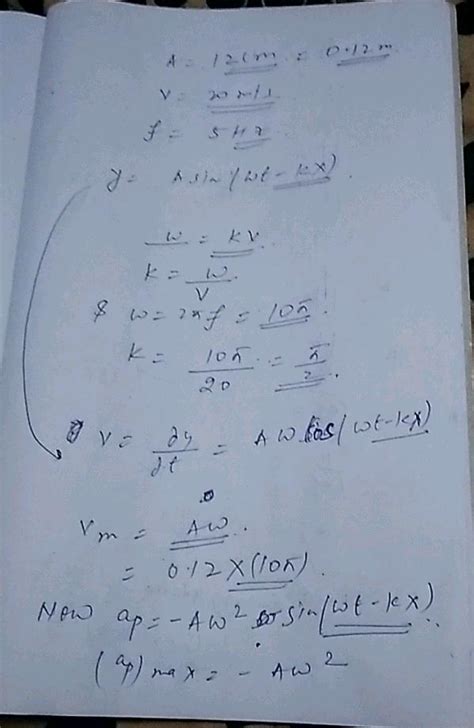 A = 12cm = 0.12m
V = 20 m/s
f = 5 Hz
y = A sin (wt - kx)
w = kv
k = w/v
& w = 2πf = 10π
k = 10π/20 = π/2
v = ∂y/∂t = Aw cos (wt-kx)
Vm = Aw
= 0.12 x (10π)
Now ap = -Aw² sin (wt-kx)
(ap) max = - Aw²